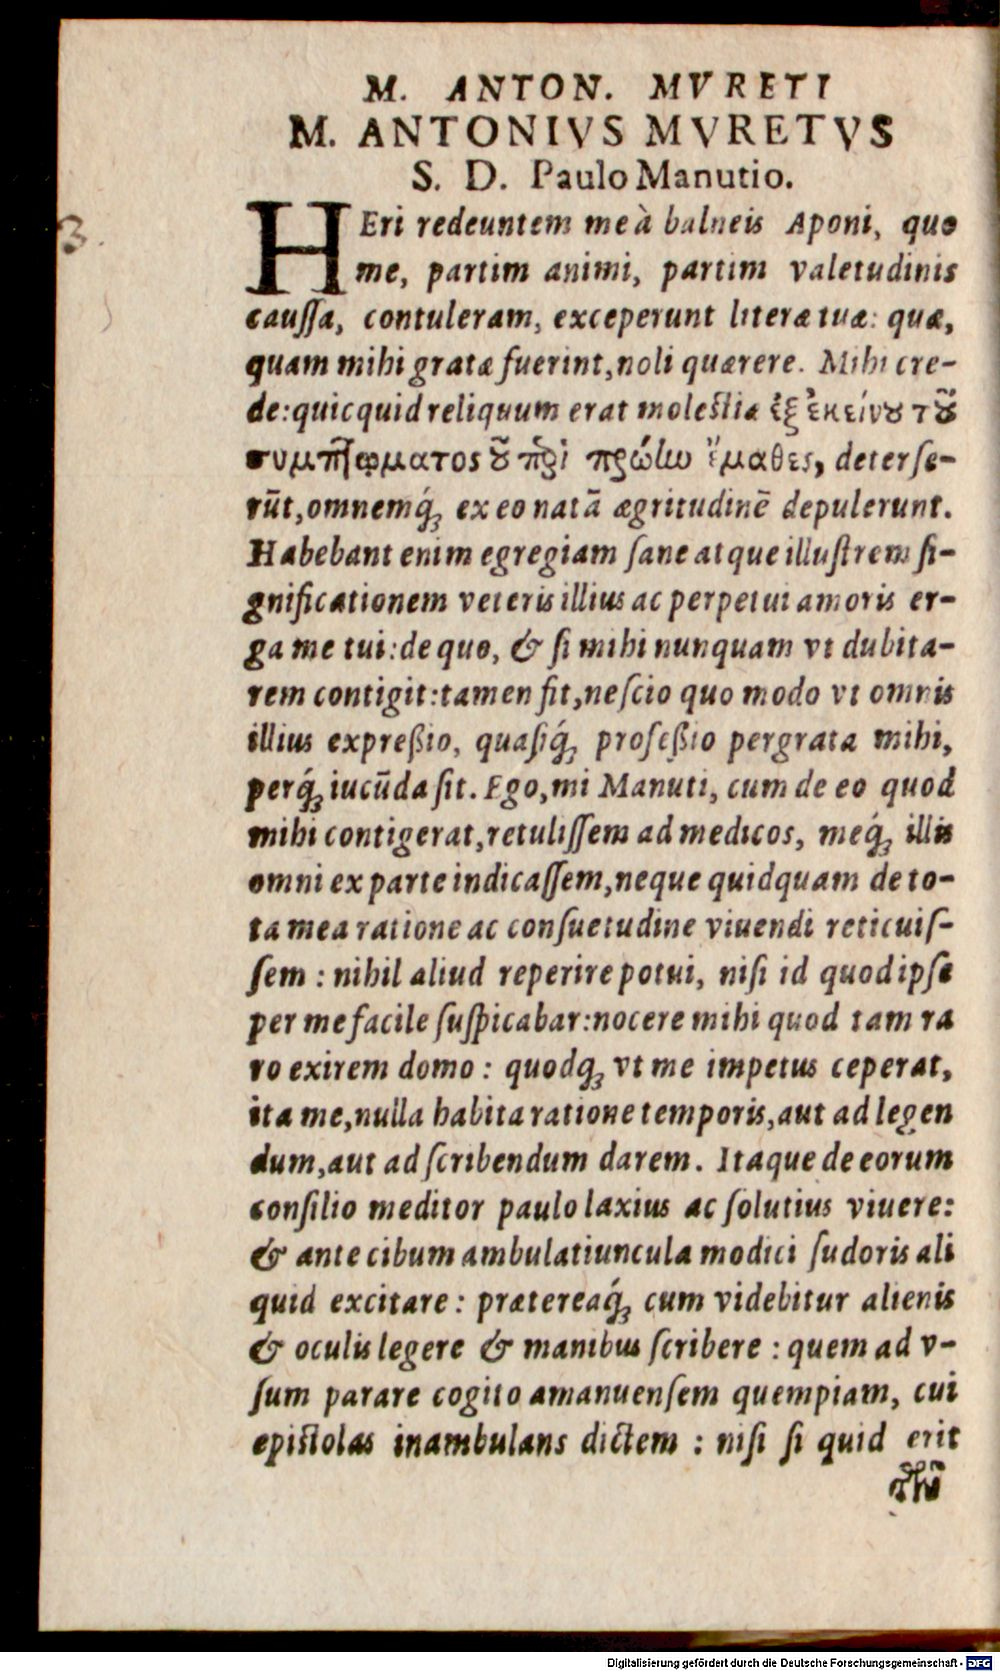 M. ANTON. MVRETI
M. ANTONIVS MVRETVS
S. D. Paulo Manutio.
HEri redeuntem me à balneis Aponi, quo
me, partim animi, partim valetudinis
cauſſa, contuleram, exceperunt literæ tuæ: quæ,
quam mihi gratæ fuerint, noli quærere. Mihi cre-
de: quicquid reliquum erat moleſtiæ ἐξ ἐκείνȣ τȣ͂
συμπτώματος ȣ͂ πρώlω ἔμαθες, deterſe-
rūt, omnemq́ꝫ ex eo natã ægritudinē depulerunt.
Habebant enim egregiam ſane atque illuſtrem ſi-
gnificationem veteris illius ac perpetui amoris er-
ga me tui: de quo, & ſi mihi nunquam vt dubita-
rem contigit: tamen fit, neſcio quo modo vt omnis
illius expreßio, quaſiq́ꝫ profeßio pergrata mihi,
perq́ꝫ iucūda ſit. Ego, mi Manuti, cum de eo quod
mihi contigerat, retuliſſem ad medicos, meq́ꝫ illis
omni ex parte indicaſſem, neque quidquam de to-
ta mea ratione ac conſuetudine viuendi reticuiſ-
ſem : nihil aliud reperire potui, niſi id quod ipſe
per me facile ſuſpicabar: nocere mihi quod tam ra
ro exirem domo : quodqꝫ vt me impetus ceperat,
ita me, nulla habita ratione temporis, aut ad legen
dum, aut ad ſcribendum darem. Itaque de eorum
conſilio meditor paulo laxius ac ſolutius viuere:
& ante cibum ambulatiuncula modici ſudoris ali
quid excitare : prætereaq́ꝫ cum videbitur alienis
& oculis legere & manibus ſcribere : quem ad v-
ſum parare cogito amanuenſem quempiam, cui
epiſtolas inambulans dictem : niſi ſi quid erit
3.
Digitalisierung gefördert durch die Deutsche Forschungsgemeinschaft - DFG